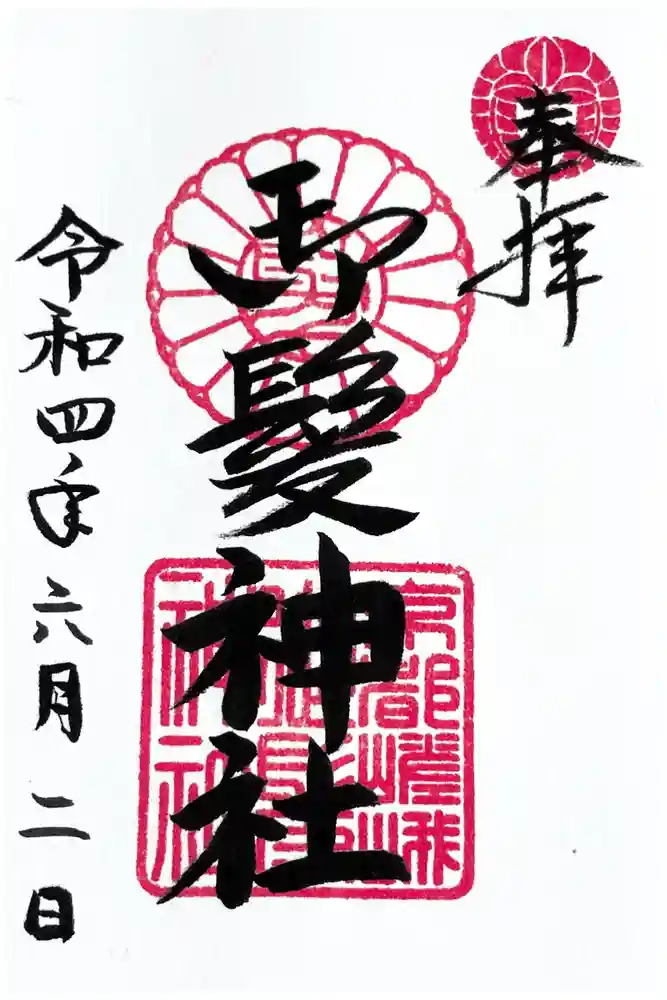 奉拝
御髪神社
令和四年六月二日
京都嵯峨